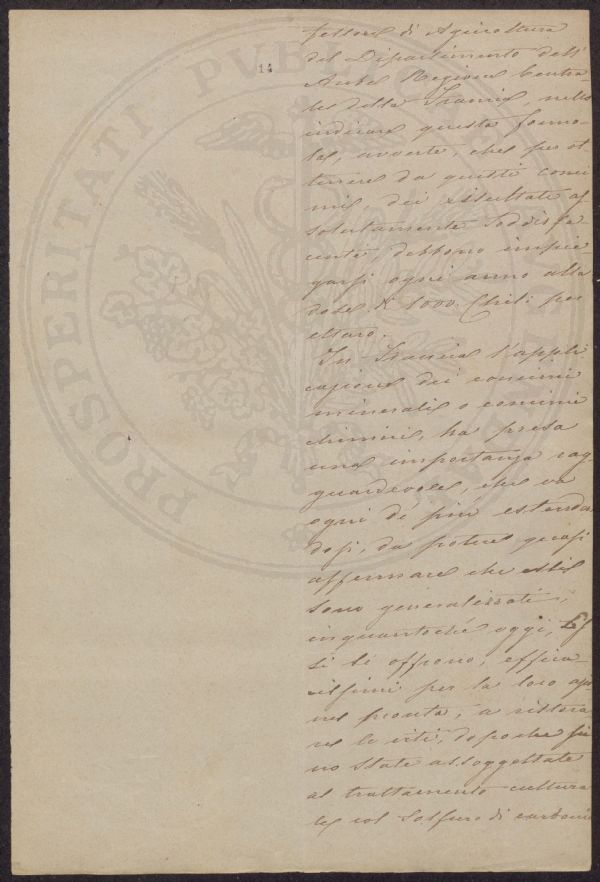 14
PROSPERITATI PVBLICAE
fessore di Agricoltura
del Dipartimento dell'
Aube Regione Centra-
le della Francia, nello
indicare questa formo-
la, avverte, che per ot
tenere da questi conci
mi, dei risultati as
solutamente soddisfa
centi, debbono impie-
garsi ogni anno alla
dose di 1000 Chil: per
ettaro.
In Francia l'appli
cazione dei concimi
minerali o concimi
chimici, ha presa
una importanza rag
guardevole, che va
ogni dì piu estenden
dosi, da potere quasi
affermare che essi
sono generalizzati;
inquantoché oggi,
si li offrono, effica-
cissimi per la loro azio
ne pronta, a ristora
re le viti, dopoche fu
no state assoggettate
al trattamento cultura
le col Solfuro di carbonio